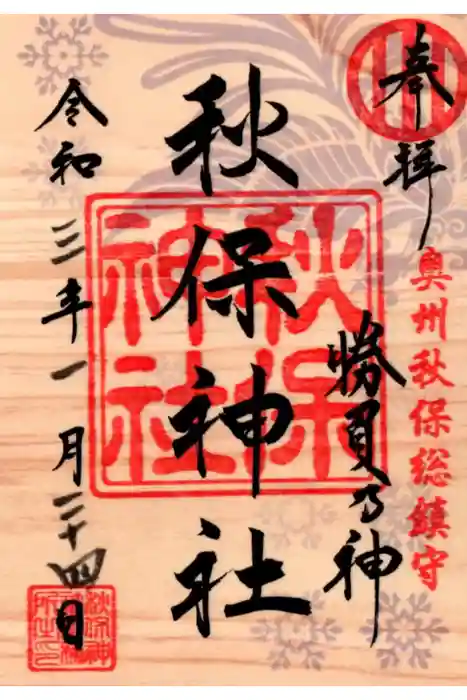 奉拝
奥州秋保総鎮守
勝負乃神
秋保神社
秋保神社
令和三年一月二十四日